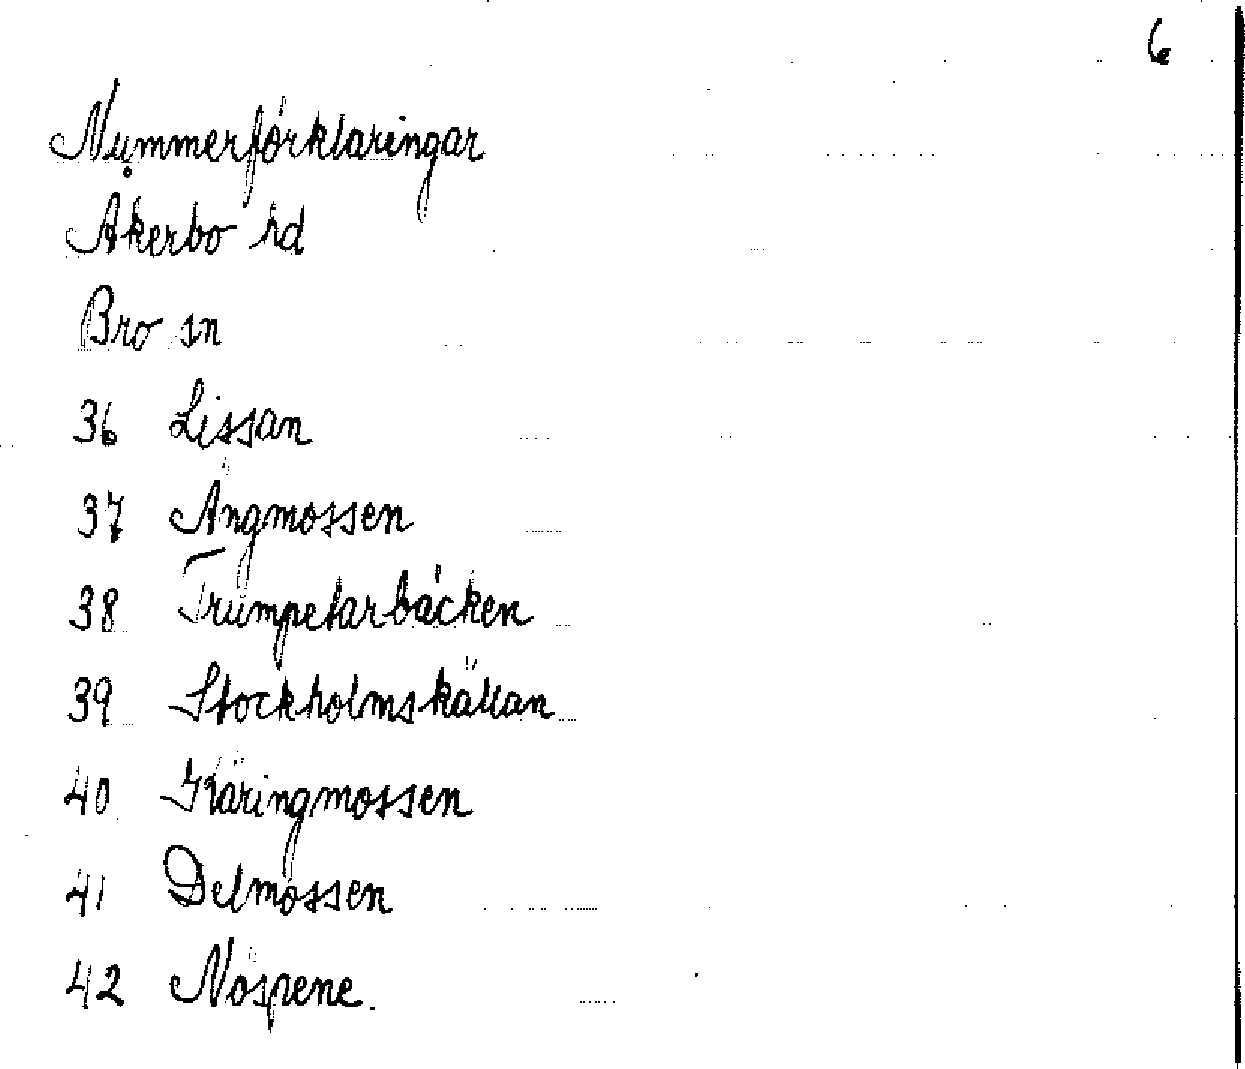 6
Nummerförklaringar
Åkerbo hd
Bro sn
36 Lissan
37 Ängmossen
38 Trumpetarbäcken
39 Stockholmskällan
40 Käringmossen
41 Delmossen
42 Nöspene.